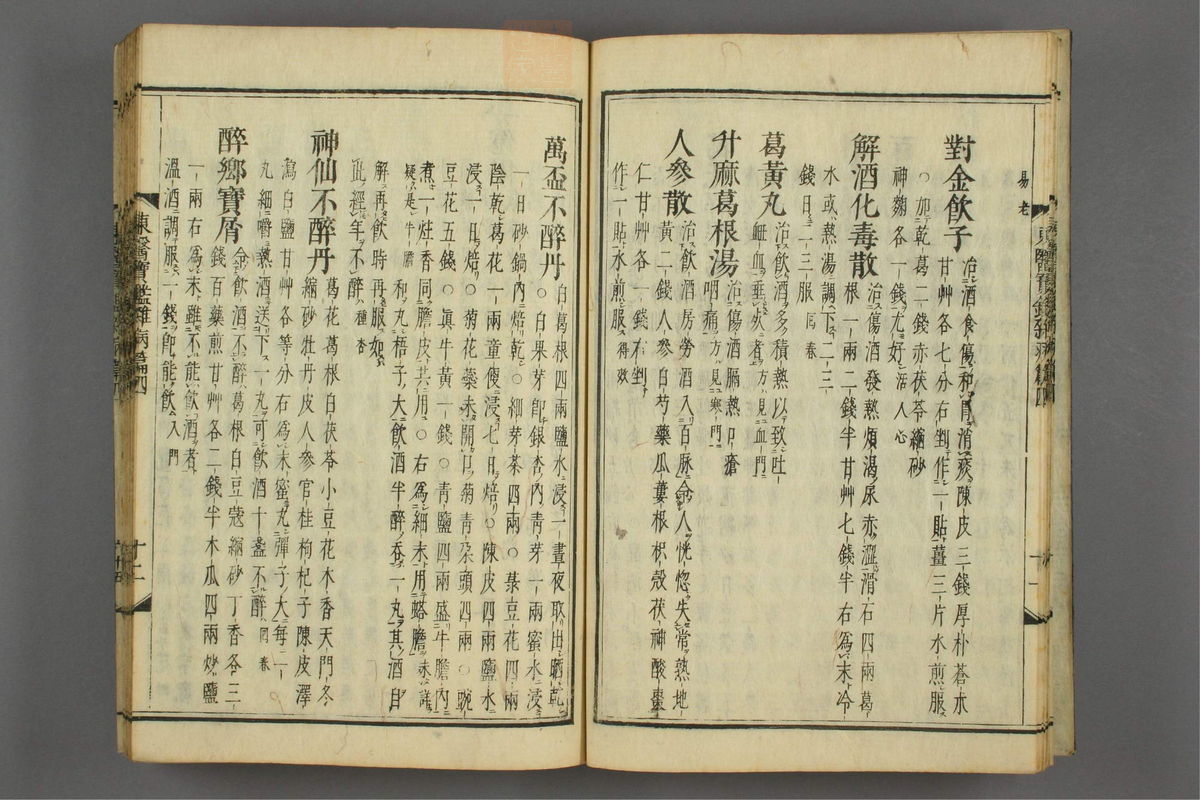 易老
對金飮子 治酒食傷和胃消痰陳皮三錢厚朴蒼朮
甘艸各七分右剉作一貼薑三片水煎服
○加乾葛二錢赤茯苓縮砂
神麴各一錢尤好 活人心
解酒化毒散 治傷酒發熱煩渴尿赤澁滑石四兩葛
根一兩二錢半甘艸七錢半右爲末冷
水或熱湯調下二三
錢日二三服 回春
葛黃丸 治飮酒多積熱以致吐
衄血垂死者 方見血門
升麻葛根湯 治傷酒膈熱口瘡
咽痛 方見寒門
人參散 治飮酒房勞酒入百脉令人恍惚失常熱地
黃二錢人參白芍藥瓜蔞根枳殼茯神酸棗
仁甘艸各一錢右剉
作一貼水煎服 得效
萬盃不醉丹 白葛根四兩鹽水浸一晝夜取出晒乾
○白果芽卽銀杏內靑芽一兩蜜水浸
一日砂鍋內焙乾○細芽茶四兩○菉豆花四兩
陰乾葛花一兩童便浸七日焙○陳皮四兩鹽水
浸一日焙○菊花蘂未開口菊靑朶頭四兩○豌
豆花五錢○眞牛黃一錢○靑鹽四兩盛牛膽內
煮一炷香同膽皮共用○右爲細末用蟠膽 未詳
疑是牛膽 和丸梧子大飮酒半醉吞一丸其酒自
解再飮時再服如
此經年不醉 種杏
神仙不醉丹 葛花葛根白茯苓小豆花木香天門冬
縮砂牡丹皮人參官桂枸杞子陳皮澤
瀉白鹽甘艸各等分右爲末蜜丸彈子大每二
丸細嚼熱酒送下一丸可飮酒十盞不醉 回春
醉鄕寶屑 令飮酒不醉葛根白豆蔲縮砂丁香各三
錢百藥煎甘艸各二錢半木瓜四兩炒鹽
一兩右爲末雖不能飮酒者
溫酒調服一錢卽能飮 入門
東醫寶鑑雜病篇四
十二